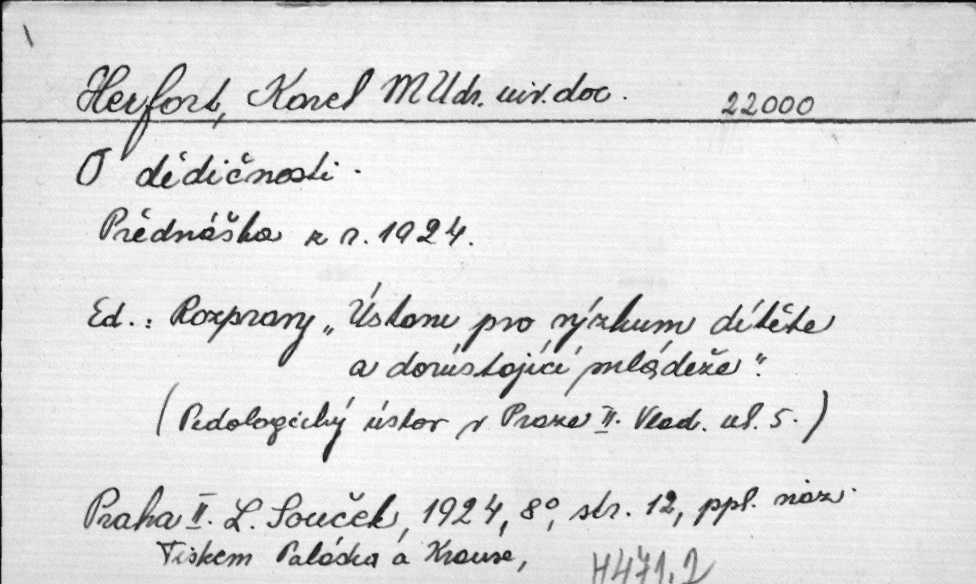 Herfort, Karel MUdr. univ. doc. 22000
O dědičnosti.
Přednáška z r. 1924.
Ed.: Rozpravy „Ústavu pro výzkum dítěte
a dorůstající mládeže".
(Pedologický ústav v Praze II. Vlad. ul. 5.)
Praha II. L. Souček, 1924, 8°, str. 12, ppl. náz.
Tiskem Paláska a Krause,
H471,2